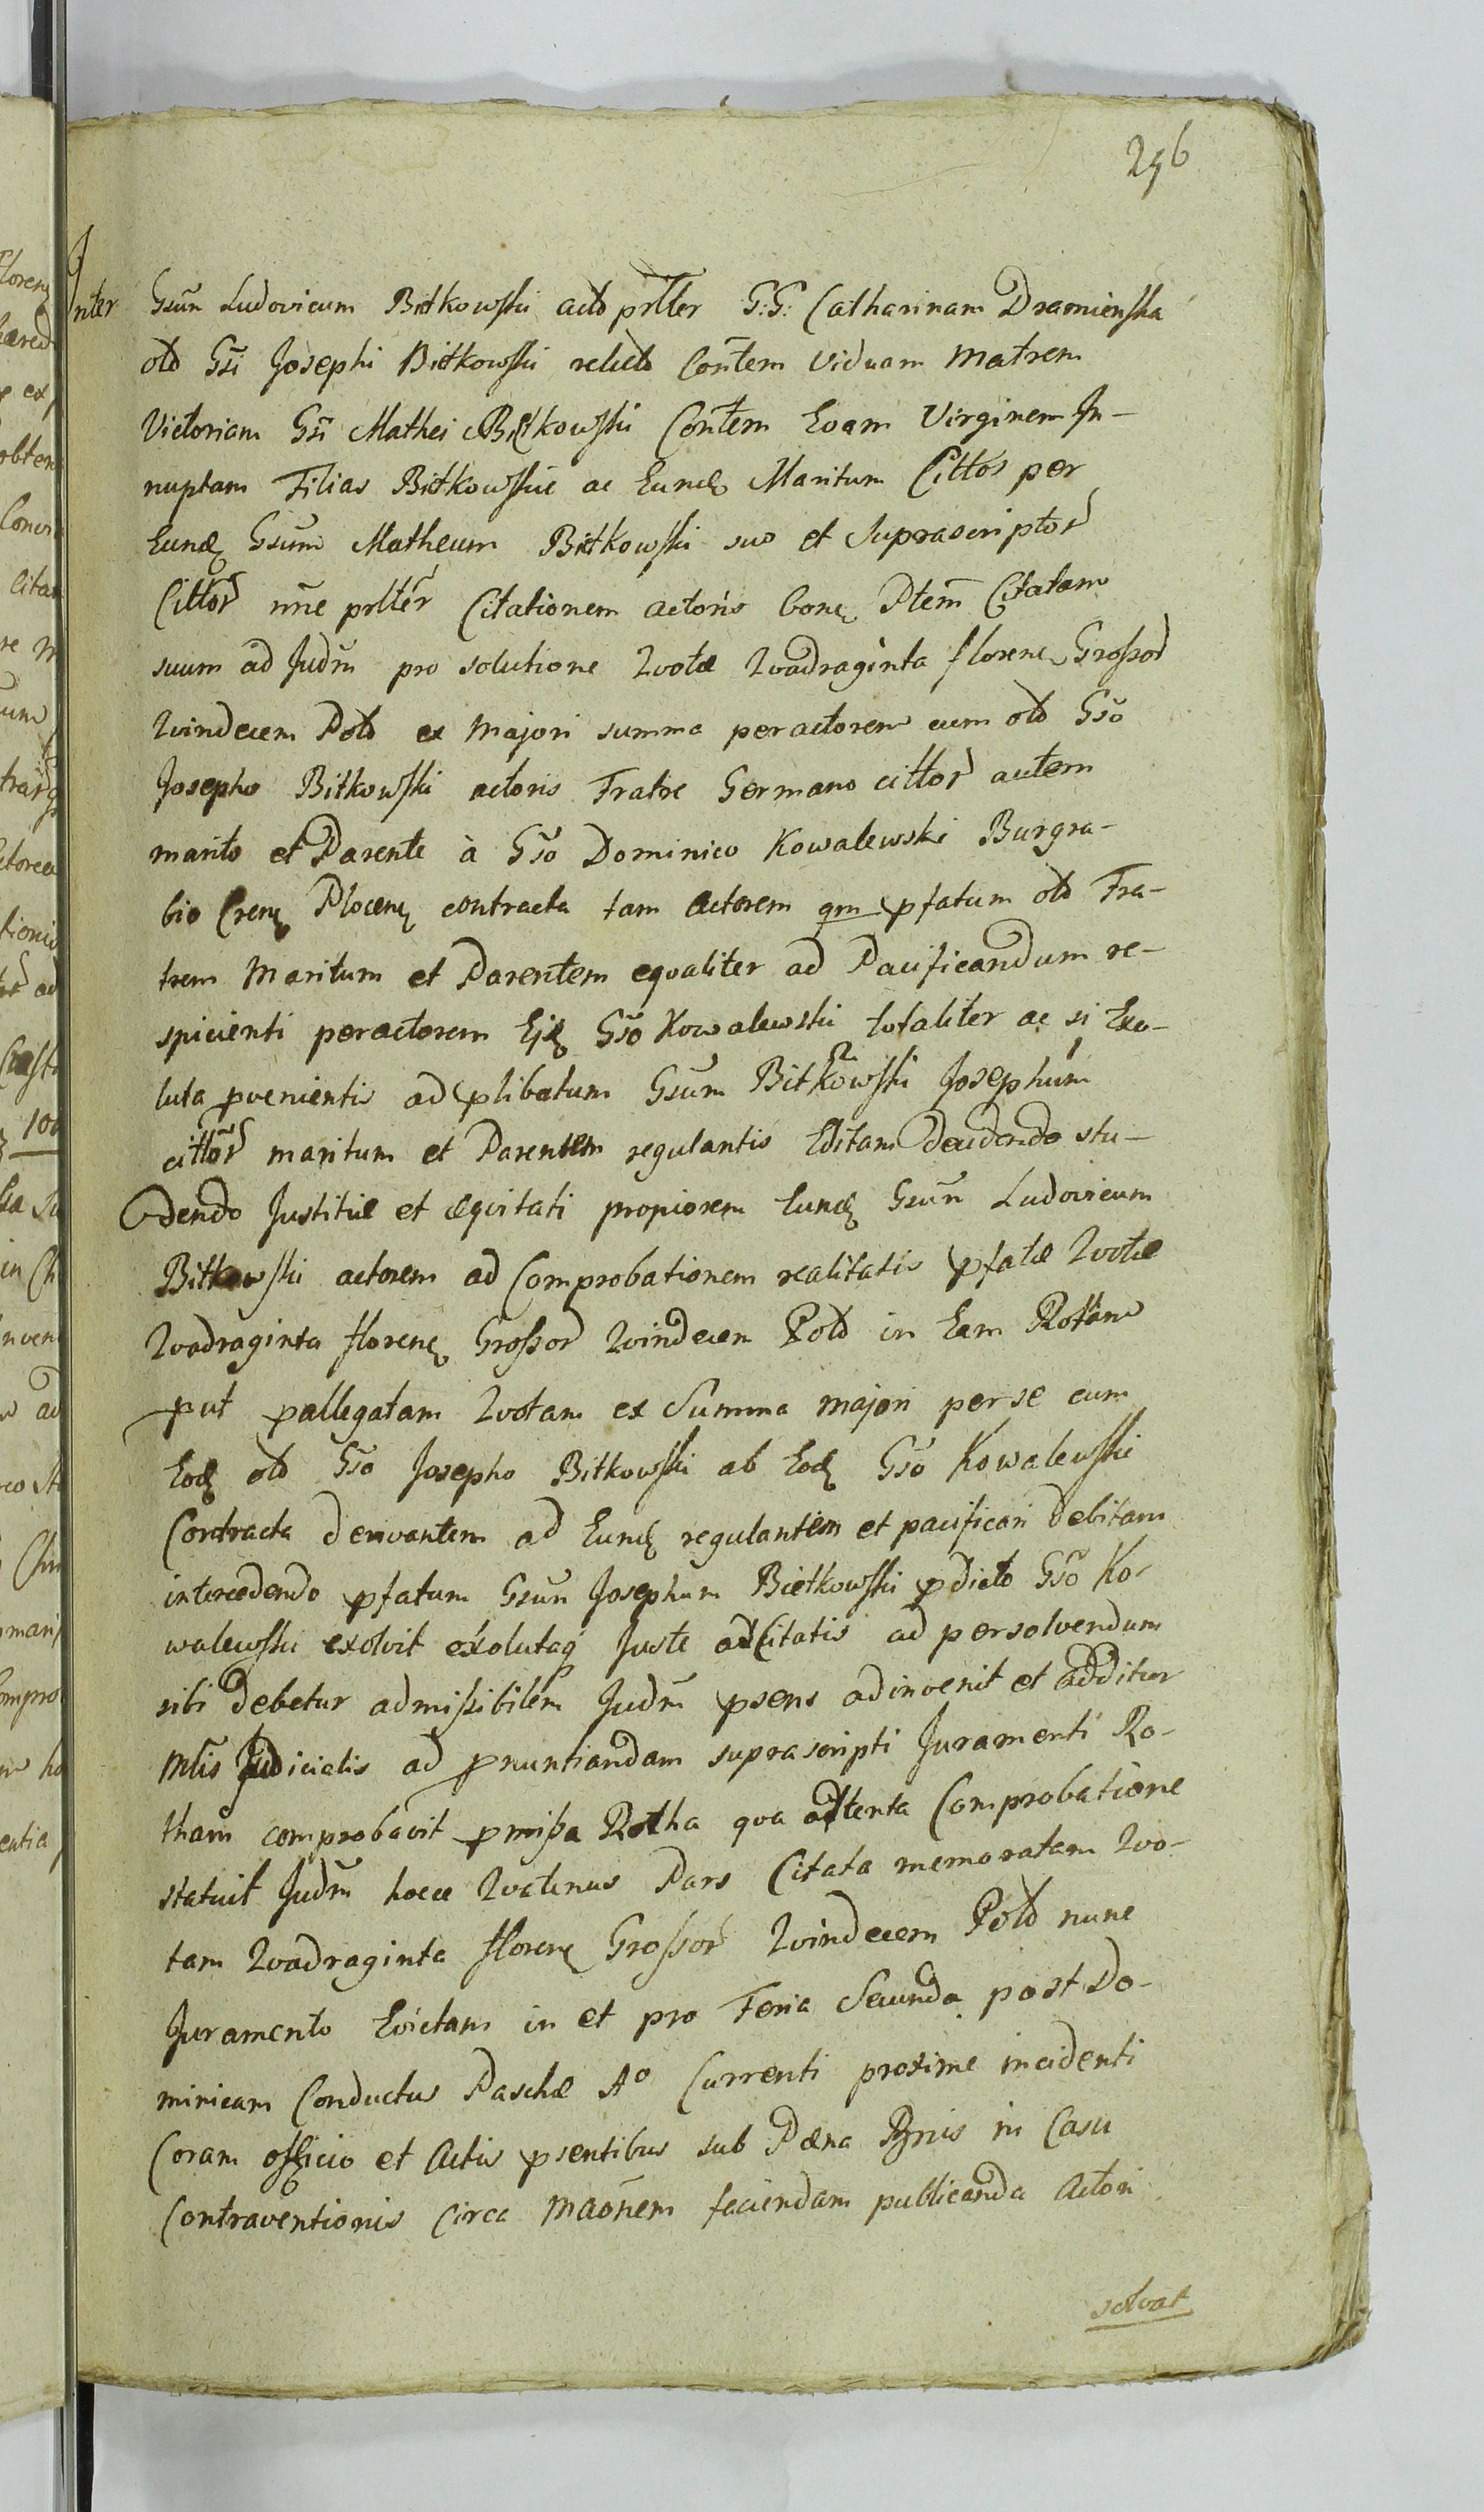 296
Inter Gsum Ludovicum Bitkowski acto prtter G:G: Catharinam Dramienska
olo Gsi Josephi Bitkowski relicto Contem Viduam Matrem
Victoriam Gsi Mathei Bitkowski Contem Evam Virginem In-
nuptam Filias Bitkowskie ac Eund Maritum Cittos per
Eund Gsum Matheum Bitkowski suo et Suprascriptor
Cittor nne prtter Citationem actoris Cone Ptem Citatam
suum ad Judm pro solutione Quotæ Quadraginta floren Grossor
Quindecem Polo ex Majori summa per actorem cum olo Gso
Josepho Bitkowski actoris Fratre Germano cittor autem
marito et Parente à Gso Dominico Kowalewski Burgra-
bio Cren Plocen contracta tam actorem qm pfatum olo Fra-
trem Maritum et Parentem eqvaliter ad Pacificandum re-
spicienti per actorem Ejd Gso Kowalewski totaliter ac si Exo-
luta pvenientis ad plibatum Gsum Bitkowski Josephum
cittor maritum et Parentem regulantis Editam decidendo stu-
dendo Justitiæ et æqvitati propiorem Eund Gsum Ludovicum
Bitkowski actorem ad Comprobationem realitatis pfatæ Quotæ
Quadraginta floren Grossor Quindecem Polo in Eam Rottam
put pallegatam Quotam ex Summa majori per se cum
Eod olo Gso Josepho Bitkowski ab Eod Gso Kowalewski
Contracta derivantem ad Eund regulantem et pacificari debitam
intercedendo pfatum Gsum Josephum Bietkowski pdicto Gso Ko-
walewski exolvit exolutaq Juste a Citatis ad persolvendum
sibi debetur admissibilem Judm psens adinvenit et additur
Mtis Judicialis ad pnuntiandam suprascripti Juramenti Ro-
tham comprobavit pmissa Rotha qva attenta Comprobatione
statuit Judm hocce Quatenus Pars Citata memoratam Quo-
tam Quadraginta floren Grossor Quindecem Polo nunc
Juramento Evictam in et pro Feria Secunda post Do-
minicam Conductus Paschæ Ao Currenti proxime incidenti
Coram officio et Actis psentibus sub Pæna Bnis in Casu
Contraventionis Circa Maonem faciendam publicanda Actori
solvat